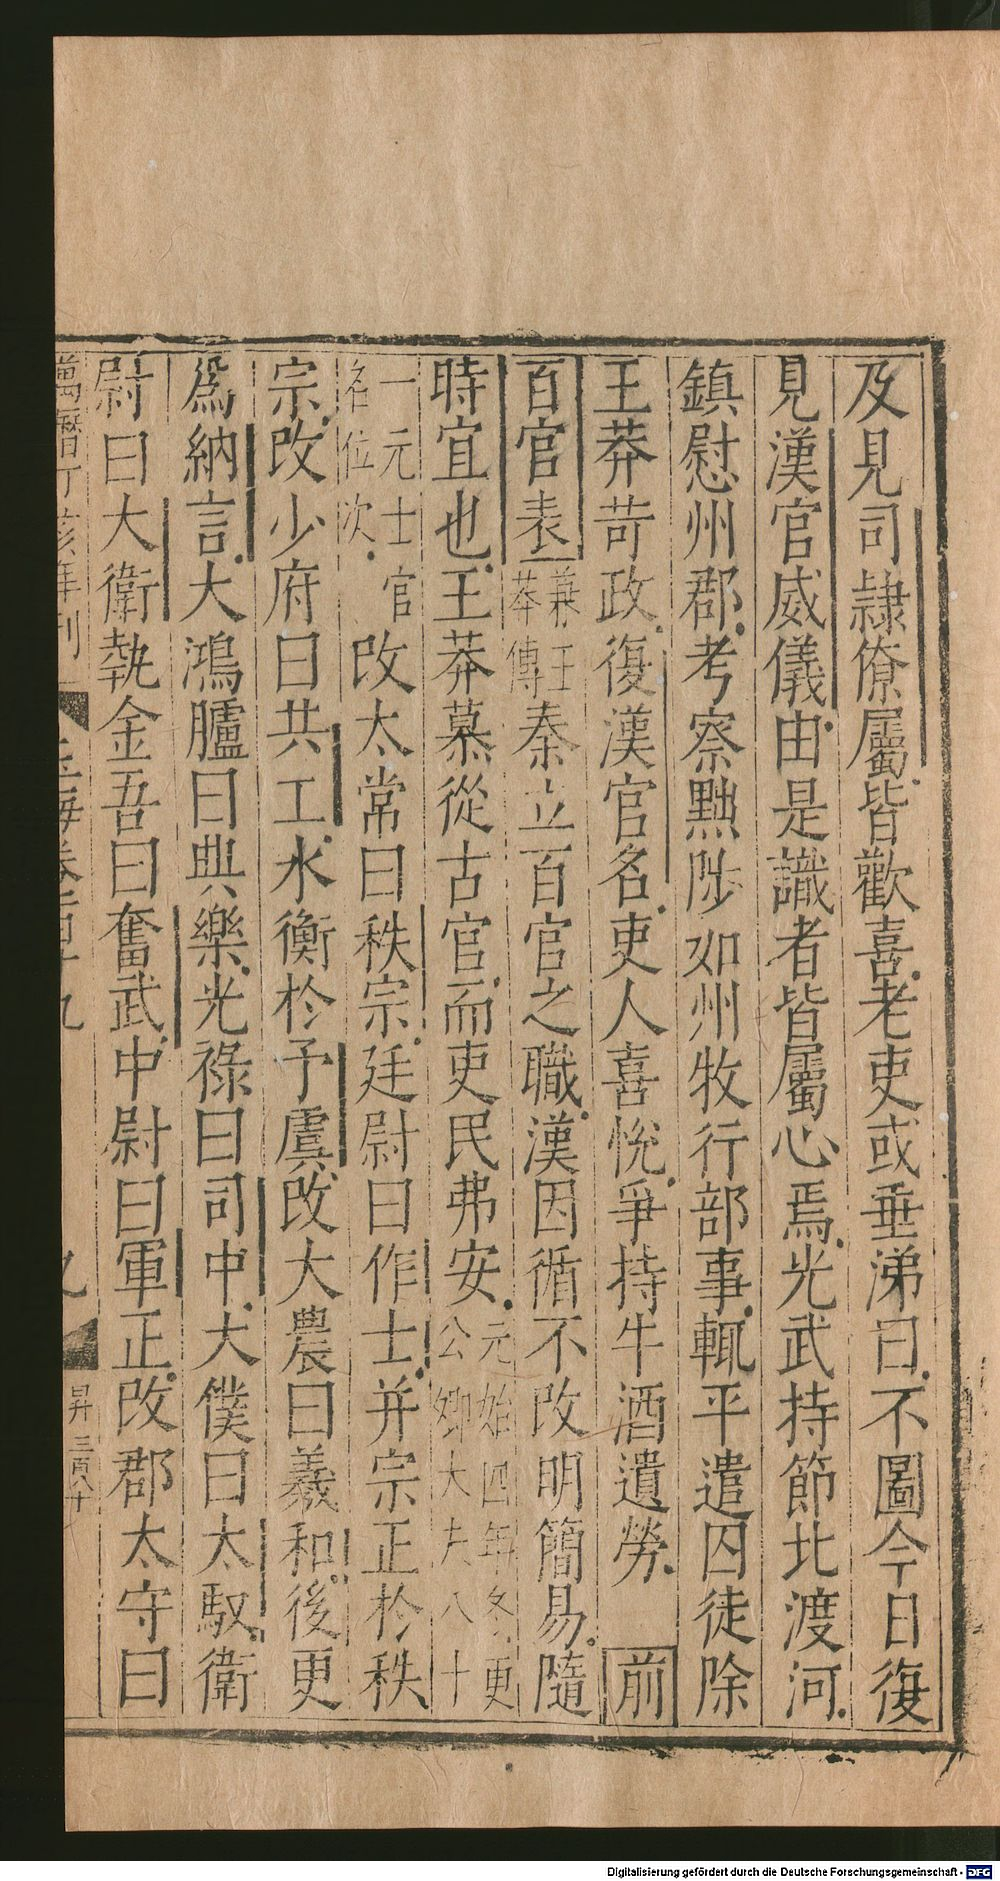 及見司隷僚屬皆歡喜老吏或垂涕曰不圖今日復
見漢官威儀由是識者皆屬心焉光武持節北渡河
鎮慰州郡考察黜陟如州牧行部事輒平遣囚徒除
王莽苛政復漢官名吏人喜悅爭持牛酒遺勞前
百官表兼王莽傳秦立百官之職漢因循不改明簡易隨
時宜也王莽慕從古官而吏民弗安元始四年冬更公卿大夫八十
一元士官名位次改太常曰秩宗廷尉曰作士并宗正於秩
宗改少府曰共工水衡於予虞改大農曰羲和後更
爲納言大鴻臚曰典樂光祿曰司中大僕曰太馭衛
尉曰大衛執金吾曰奮武中尉曰軍正改郡太守曰
萬曆丁亥年刊
玉海卷百十九
九
昇 三百八十
Digitalisierung gefördert durch die Deutsche Forschungsgemeinschaft - DFG